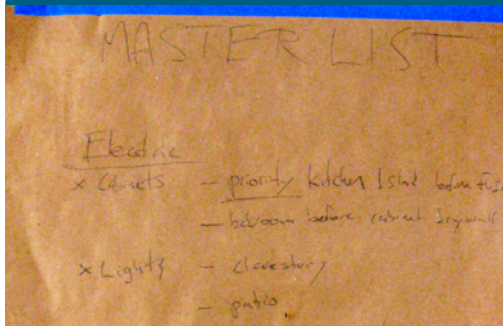 MASTER LIST
Electric
x Cabinets - priority kitchen island before
- bedroom before cabinet drywall
x Lights - clerestory
- patio